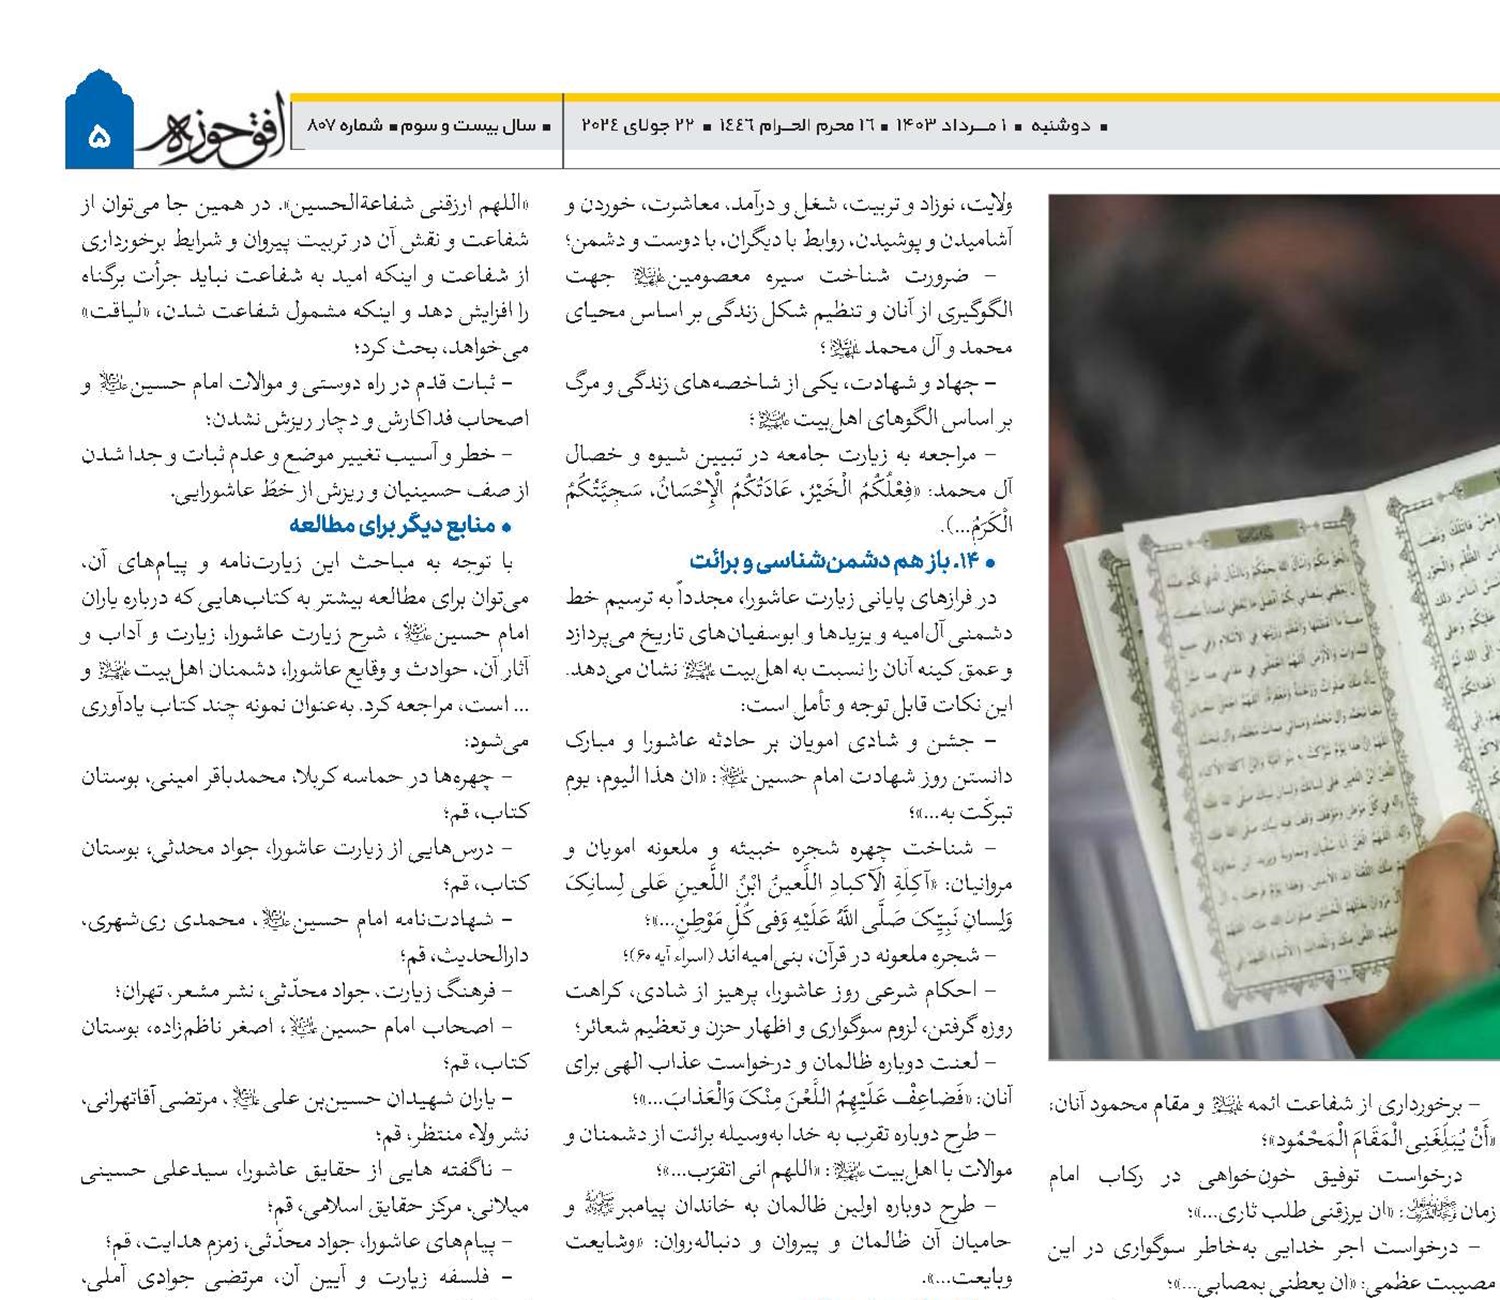 ▪ دوشنبه ▪ ۱ مـرداد ۱۴۰۳ ▪ ۱۶ محرم الحرام ۱٤٤۶ ▪ ۲۲ جولای ۲۰۲٤
▪ سال بیست و سوم ▪ شماره ۸۰۷
افق حوزه
۵
– برخورداری از شفاعت ائمه علیهم‌السلام و مقام محمود آنان:
«أَنْ يُبَلِّغَنِی الْمَقامَ الْمَحْمُود»؛
درخواست توفیق خون‌خواهی در رکاب امام
زمان: «ان یرزقنی طلب ثاری...»؛
– درخواست اجر خدایی به‌خاطر سوگواری در این
مصیبت عظمی: «ان یعطنی بمصابی...»؛
ولایت، نوزاد و تربیت، شغل و درآمد، معاشرت، خوردن و
آشامیدن و پوشیدن، روابط با دیگران، با دوست و دشمن؛
– ضرورت شناخت سیره معصومین علیهم‌السلام جهت
الگوگیری از آنان و تنظیم شکل زندگی بر اساس محیای
محمد و آل محمد علیهم‌السلام؛
– جهاد و شهادت، یکی از شاخصه‌های زندگی و مرگ
بر اساس الگوهای اهل‌بیت علیهم‌السلام؛
– مراجعه به زیارت جامعه در تبیین شیوه و خصال
آل محمد: «فِعْلُكُمُ الْخَيْرُ، عَادَتُكُمُ الْإِحْسَانُ، سَجِيَّتُكُمُ
الْكَرَمُ...).
• ۱۴. باز هم دشمن‌شناسی و برائت
در فرازهای پایانی زیارت عاشورا، مجدداً به ترسیم خط
دشمنی آل‌امیه و یزیدها و ابوسفیان‌های تاریخ می‌پردازد
و عمق کینه آنان را نسبت به اهل‌بیت علیهم‌السلام نشان می‌دهد.
این نکات قابل توجه و تأمل است:
– جشن و شادی امویان بر حادثه عاشورا و مبارک
دانستن روز شهادت امام حسین علیه‌السلام: «ان هذا الیوم، یوم
تبرکّت به...»؛
– شناخت چهره شجره خبیثه و ملعونه امویان و
مروانیان: «آکِلَةِ الْآکبادِ اللَّعینُ ابْنُ اللَّعینِ عَلی لِسانِکَ
وَلِسانِ نَبِیِّکَ صَلَّی اللَّهُ عَلَیْهِ وَفی کُلِّ مَوْطِنٍ...»؛
– شجره ملعونه در قرآن، بنی‌امیه‌اند (اسراء آیه ۶۰)؛
– احکام شرعی روز عاشورا، پرهیز از شادی، کراهت
روزه گرفتن، لزوم سوگواری و اظهار حزن و تعظیم شعائر؛
– لعنت دوباره ظالمان و درخواست عذاب الهی برای
آنان: «فَضاعِفْ عَلَیْهِمُ اللَّعْنَ مِنْکَ وَالْعَذابَ...»؛
– طرح دوباره تقرب به خدا به‌وسیله برائت از دشمنان و
موالات با اهل‌بیت علیهم‌السلام: «اللهم انی اتقرّب...»؛
– طرح دوباره اولین ظالمان به خاندان پیامبر و
حامیان آن ظالمان و پیروان و دنباله‌روان: «وشایعت
وبایعت...».
«اللهم ارزقنی شفاعةالحسین». در همین جا می‌توان از
شفاعت و نقش آن در تربیت پیروان و شرایط برخورداری
از شفاعت و اینکه امید به شفاعت نباید جرأت برگناه
را افزایش دهد و اینکه مشمول شفاعت شدن، «لیاقت»
می‌خواهد، بحث کرد؛
– ثبات قدم در راه دوستی و موالات امام حسین علیه‌السلام و
اصحاب فداکارش و دچار ریزش نشدن؛
– خطر و آسیب تغییر موضع و عدم ثبات و جدا شدن
از صف حسینیان و ریزش از خطّ عاشورایی.
• منابع دیگر برای مطالعه
با توجه به مباحث این زیارت‌نامه و پیام‌های آن،
می‌توان برای مطالعه بیشتر به کتاب‌هایی که درباره یاران
امام حسین علیه‌السلام، شرح زیارت عاشورا، زیارت و آداب و
آثار آن، حوادث و وقایع عاشورا، دشمنان اهل‌بیت علیهم‌السلام و
... است، مراجعه کرد. به‌عنوان نمونه چند کتاب یادآوری
می‌شود:
– چهره‌ها در حماسه کربلا، محمدباقر امینی، بوستان
کتاب، قم؛
– درس‌هایی از زیارت عاشورا، جواد محدثی، بوستان
کتاب، قم؛
– شهادت‌نامه امام حسین علیه‌السلام، محمدی ری‌شهری،
دارالحدیث، قم؛
– فرهنگ زیارت، جواد محدّثی، نشر مشعر، تهران؛
– اصحاب امام حسین علیه‌السلام، اصغر ناظم‌زاده، بوستان
کتاب، قم؛
– یاران شهیدان حسین‌بن علی علیه‌السلام، مرتضی آقاتهرانی،
نشر ولاء منتظر، قم؛
– ناگفته هایی از حقایق عاشورا، سیدعلی حسینی
میلانی، مرکز حقایق اسلامی، قم؛
– پیام‌های عاشورا، جواد محدّثی، زمزم هدایت، قم؛
– فلسفه زیارت و آیین آن، مرتضی جوادی آملی،